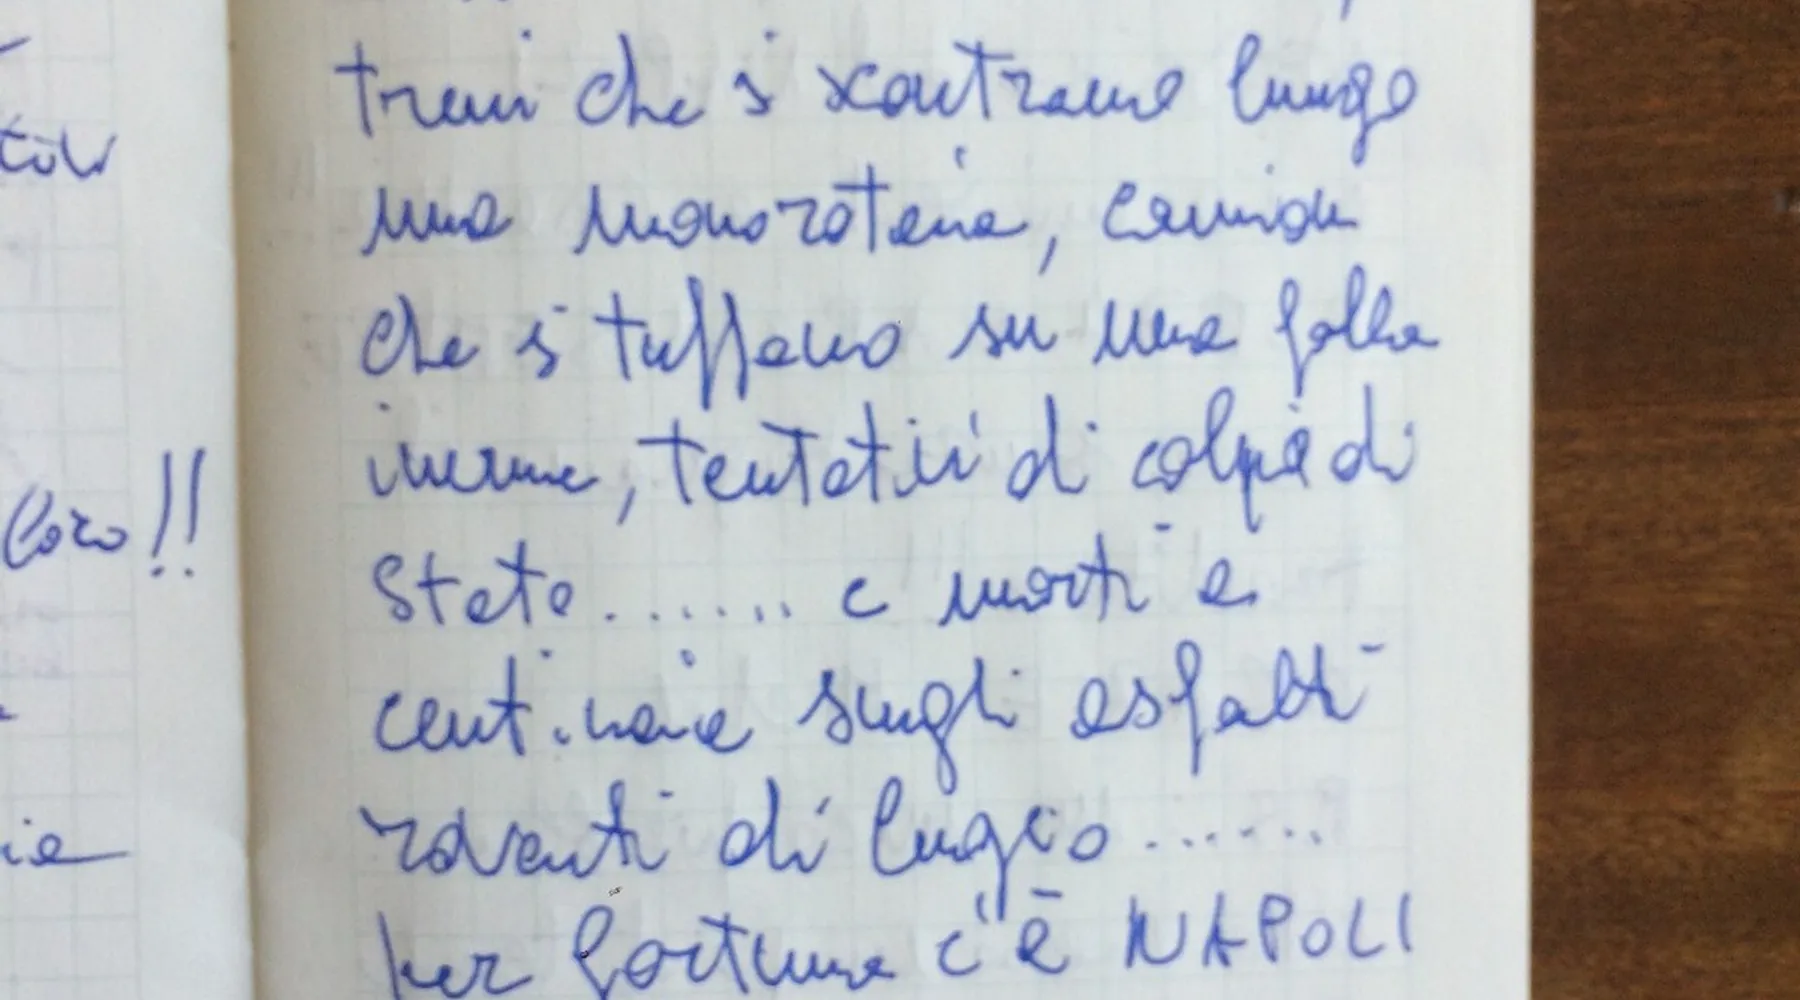 treni che si scontrano lungo
una monorotaia, camion
che si tuffano su una folla
inerme, tentativi di colpi di
Stato....... e morti a
centinaia sugli asfalti
roventi di luglio......
per fortuna c'è NAPOLI
loro!!